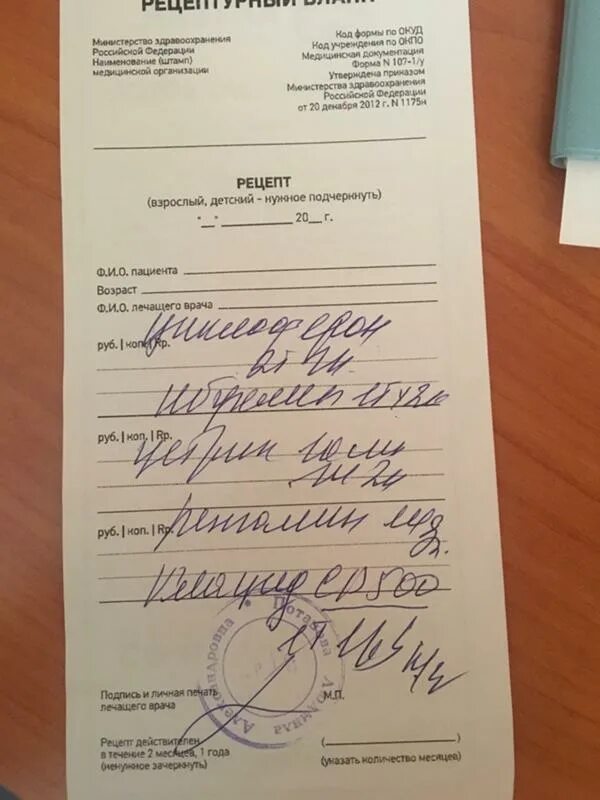 РЕЦЕПТУРНЫЙ БЛАНК
Министерство здравоохранения
Российской Федерации
Наименование (штамп)
медицинской организации
Код формы по ОКУД
Код учреждения по ОКПО
Медицинская документация
Форма N 107-1/у
Утверждена приказом
Министерства здравоохранения
Российской Федерации
от 20 декабря 2012 г. N 1175н
РЕЦЕПТ
(взрослый, детский - нужное подчеркнуть)
"__" __________ 20__ г.
Ф.И.О. пациента
Возраст
Ф.И.О. лечащего врача
Циклоферон
руб. | коп. | Rp.
2т
Ибуклин 1т х 2
руб. | коп. | Rp.
Цетрин 10
руб. | коп. | Rp.
Ренгалин
Клацид СР 500
Потапова Людмила Александровна
Подпись и личная печать
лечащего врача
М.П.
Рецепт действителен
в течение 2 месяцев, 1 года
(ненужное зачеркнуть)
(____________________)
(указать количество месяцев)